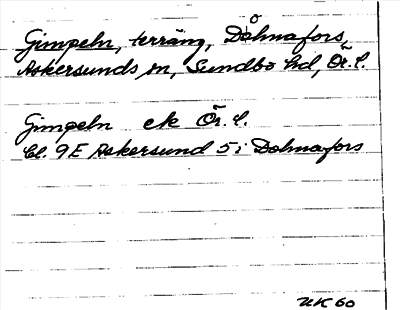 Gimpeln, terräng, Dohnafors,
Askersunds sn, Sundbo hd, Ör. l.
Gimpeln ek Ör. l.
Bl. 9E Askersund 5i Dohnafors
UK 60